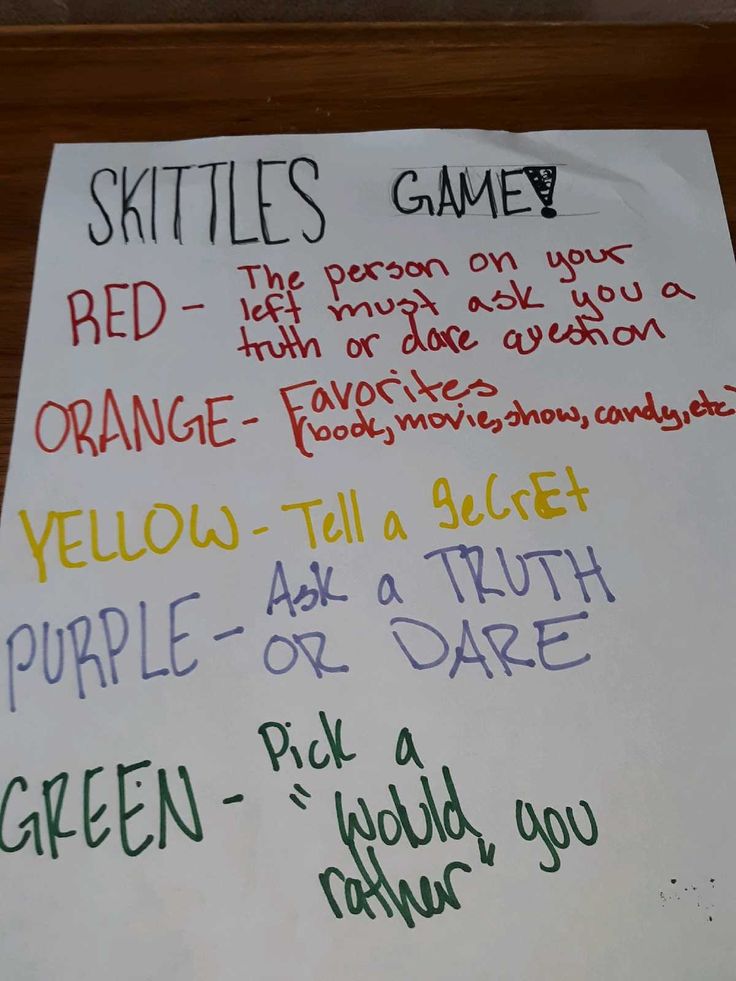 SKITTLES GAME!
RED - The person on your
left must ask you a
truth or dare question
ORANGE - Favorites
(book, movie, show, candy, etc)
YELLOW - Tell a SeCrEt
PURPLE - Ask a TRUTH
OR DARE
GREEN - Pick a
"Would you
rather"